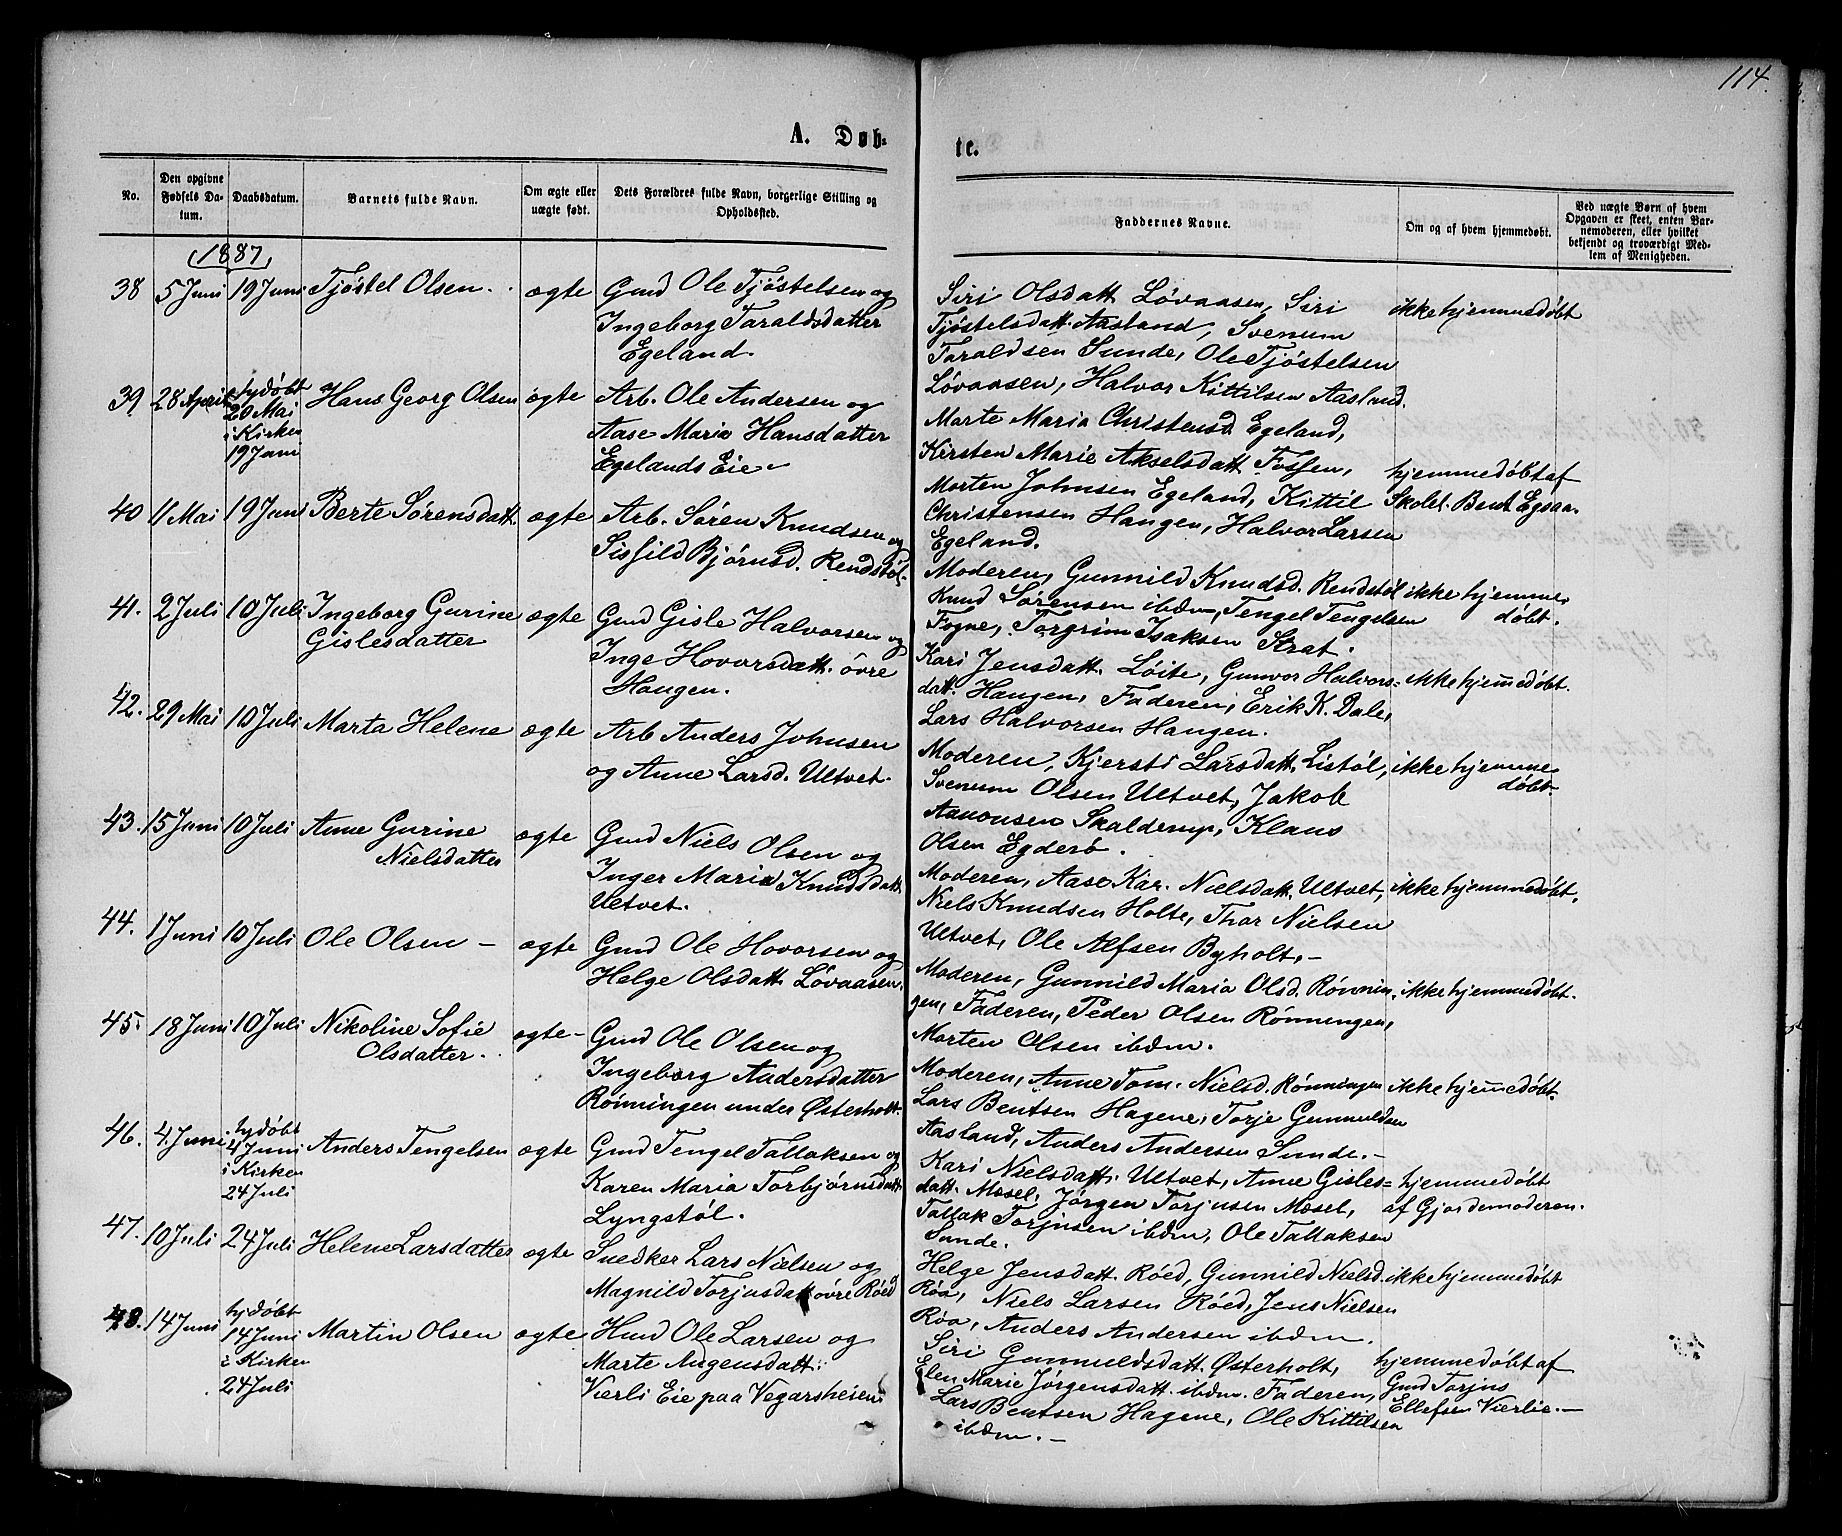 114.
A. Døb-
te.
No.
Den opgivne Fødsels Da-tum.
Daabsdatum.
Barnets fulde Navn.
Om ægte eller uægte født.
Dets Forældres fulde Navn, borgerlige Stilling og Opholdssted.
Faddernes Navne.
Om og af hvem hjemmedøbt.
Ved uægte Børn af hvem Opgaven er skeet, enten Bar-nemoderen, eller hvilket bekjendt og troværdigt Med-lem af Menigheden.
1887
38 5 Juni 19 Juni Tjøstel Olsen. ægte Gmd Ole Tjøstelsen og
Ingeborg Taraldsdatter
Egeland.
Siri Olsdatt Løvaasen, Siri
Tjøstelsdatt. Aasland, Svenum
Taraldsen Sunde, Ole Tjøstelsen
Løvaasen, Halvor Kittilsen Aasland.
ikke hjemmedøbt
39 28 April hjdøbt
20 Mai
i Kirken
19 Juni
Hans Georg Olsen ægte Arb. Ole Andersen og
Aase Maria Hansdatter
Egelands Eie
Marte Maria Christensd. Egeland,
Kirsten Marie Akselsdatt Fossen,
Morten Johnsen Egeland, Kittil
Christensen Haugen, Halvor Larsen
Egeland.
hjemmedøbt af
Skolel. Bent Egsaa.
40 11 Mai 19 Juni Berte Sørensdatt. ægte Arb. Søren Knudsen og
Sisfild Bjørnsd. Rendstøl.
Moderen, Gunnild Knudsd. Rendstøl
Knud Sørensen ibdm, Tengel Tengelsen
Fogne, Torgrim Isaksen Strat.
ikke hjemme
døbt.
41. 2 Juli 10 Juli Ingeborg Gurine
Gislesdatter
ægte Gmd Gisle Halvorsen og
Inge Hovorsdatt. øvre
Haugen.
Kari Jensdatt. Løite, Gunvor Halvors=
datt. Haugen, Faderen, Erik K. Dale,
Lars Halvorsen Haugen.
ikke hjem̅edøbt.
42. 29 Mai 10 Juli Marta Helene ægte Arb Anders Johnsen
og Anne Larsd. Ultvet.
Moderen, Kjersti Larsdatt. Listøl,
Svenum Olsen Ultvet, Jakob
Aanonsen Skalderup, Klaus
Olsen Egderø.
ikke hjemme
døbt.
43. 15 Juni 10 Juli Anne Gurine
Nielsdatter
ægte Gmd Niels Olsen og
Inger Maria Knudsdatt.
Ultvet.
Moderen, Aase Kar. Nielsdatt. Ultvet,
Niels Knudsen Holte, Thor Nielsen
Ultvet, Ole Alfsen Byholt.
ikke hjemmedøbt.
44. 1 Juni 10 Juli Ole Olsen ægte Gmd Ole Hovorsen og
Helge Olsdatt. Løvaasen.
Moderen, Gunnild Maria Olsd. Rønnin
gen, Faderen, Peder Olsen Rønningen,
Morten Olsen ibdm.
ikke hjemmedøbt.
45. 18 Juni 10 Juli Nikoline Sofie
Olsdatter.
ægte Gmd Ole Olsen og
Ingeborg Andersdatter
Rønningen under Østerholt.
Moderen, Anne Tom. Nielsd. Rønningen
Lars Bentsen Hagene, Torje Gunnulden
Aasland, Anders Andersen Sunde.
ikke hjem̅edøbt.
46. 4. Juni hjdøbt
4 Juni
i Kirken
24 Juli
Anders Tengelsen ægte Gmd Tengel Tallaksen og
Karen Maria Torbjørnsdatt.
Lyngstøl.
Kari Nielsdatt. Ultvet, Anne Gisles=
datt. Mosel, Jørgen Torjusen Mosel,
Tallak Torjusen ibdm, Ole Tallaksen
Sunde.
hjemmedøbt
af Gjordemoderen.
47. 10 Juli 24 Juli Helene Larsdatter ægte Snedker Lars Nielsen og
Magnild Torjusdatt. øvre Røed
Helge Jensdatt. Røed, Gunnild Nielsd.
Røa, Niels Larsen Røed, Jens Nielsen
Røa, Anders Andersen ibdm.
ikke hjemmedøbt
48. 14 Juni hjdøbt
14 Juni
i Kirken
24 Juli
Martin Olsen ægte Hmd Ole Larsen og
Marte Augensdatt.
Værli Eie paa Vegarsheien
Siri Gunnuldsdatt. Østerholt,
Elen Marie Jørgensdatt. ibdm. Faderen,
Lars Bentsen Hagene, Ole Kittilsen
ibdm.
hjemmedøbt af
Gmd Torjus
Ellefsen Værlie.